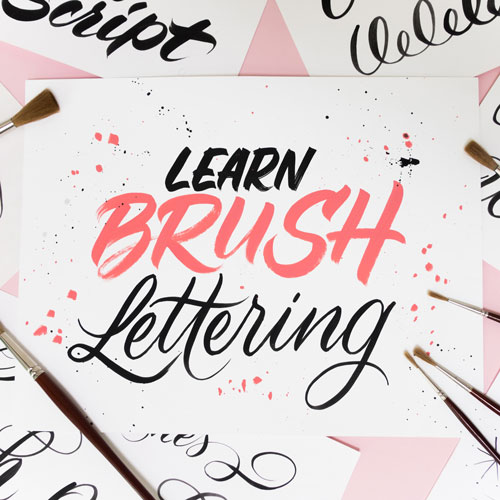 Script
LEARN
BRUSH
Lettering